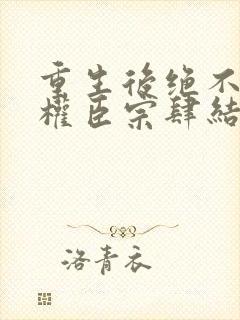 重生後绝不
權臣宗肆結
洛青衣